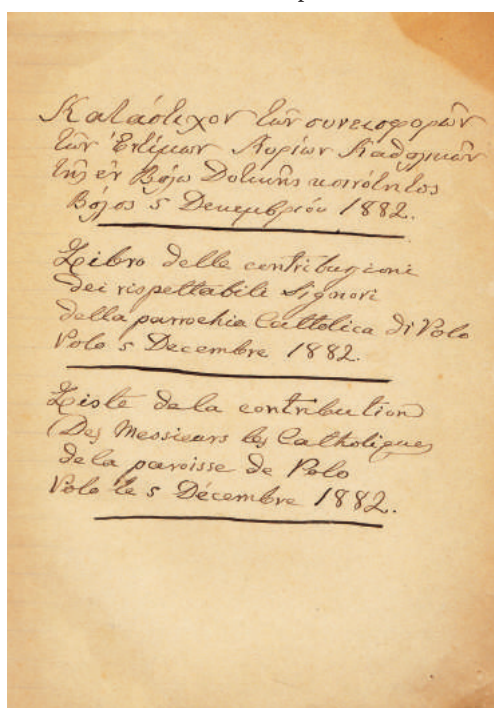 Κατάστιχον τῶν συνεισφορῶν
τῶν Ἐντίμων Κυρίων Καθολικῶν
τῆς ἐν Βόλω Δυτικῆς κοινότητος
Βόλος 5 Δεκεμβρίου 1882.
Libro delle contribuzioni
dei rispettabili Signori
della parrochia Cattolica di Volo
Volo 5 Decembre 1882.
Liste de la contribution
Des Messieurs les Catholiques
de la paroisse de Volo
Volo le 5 Décembre 1882.